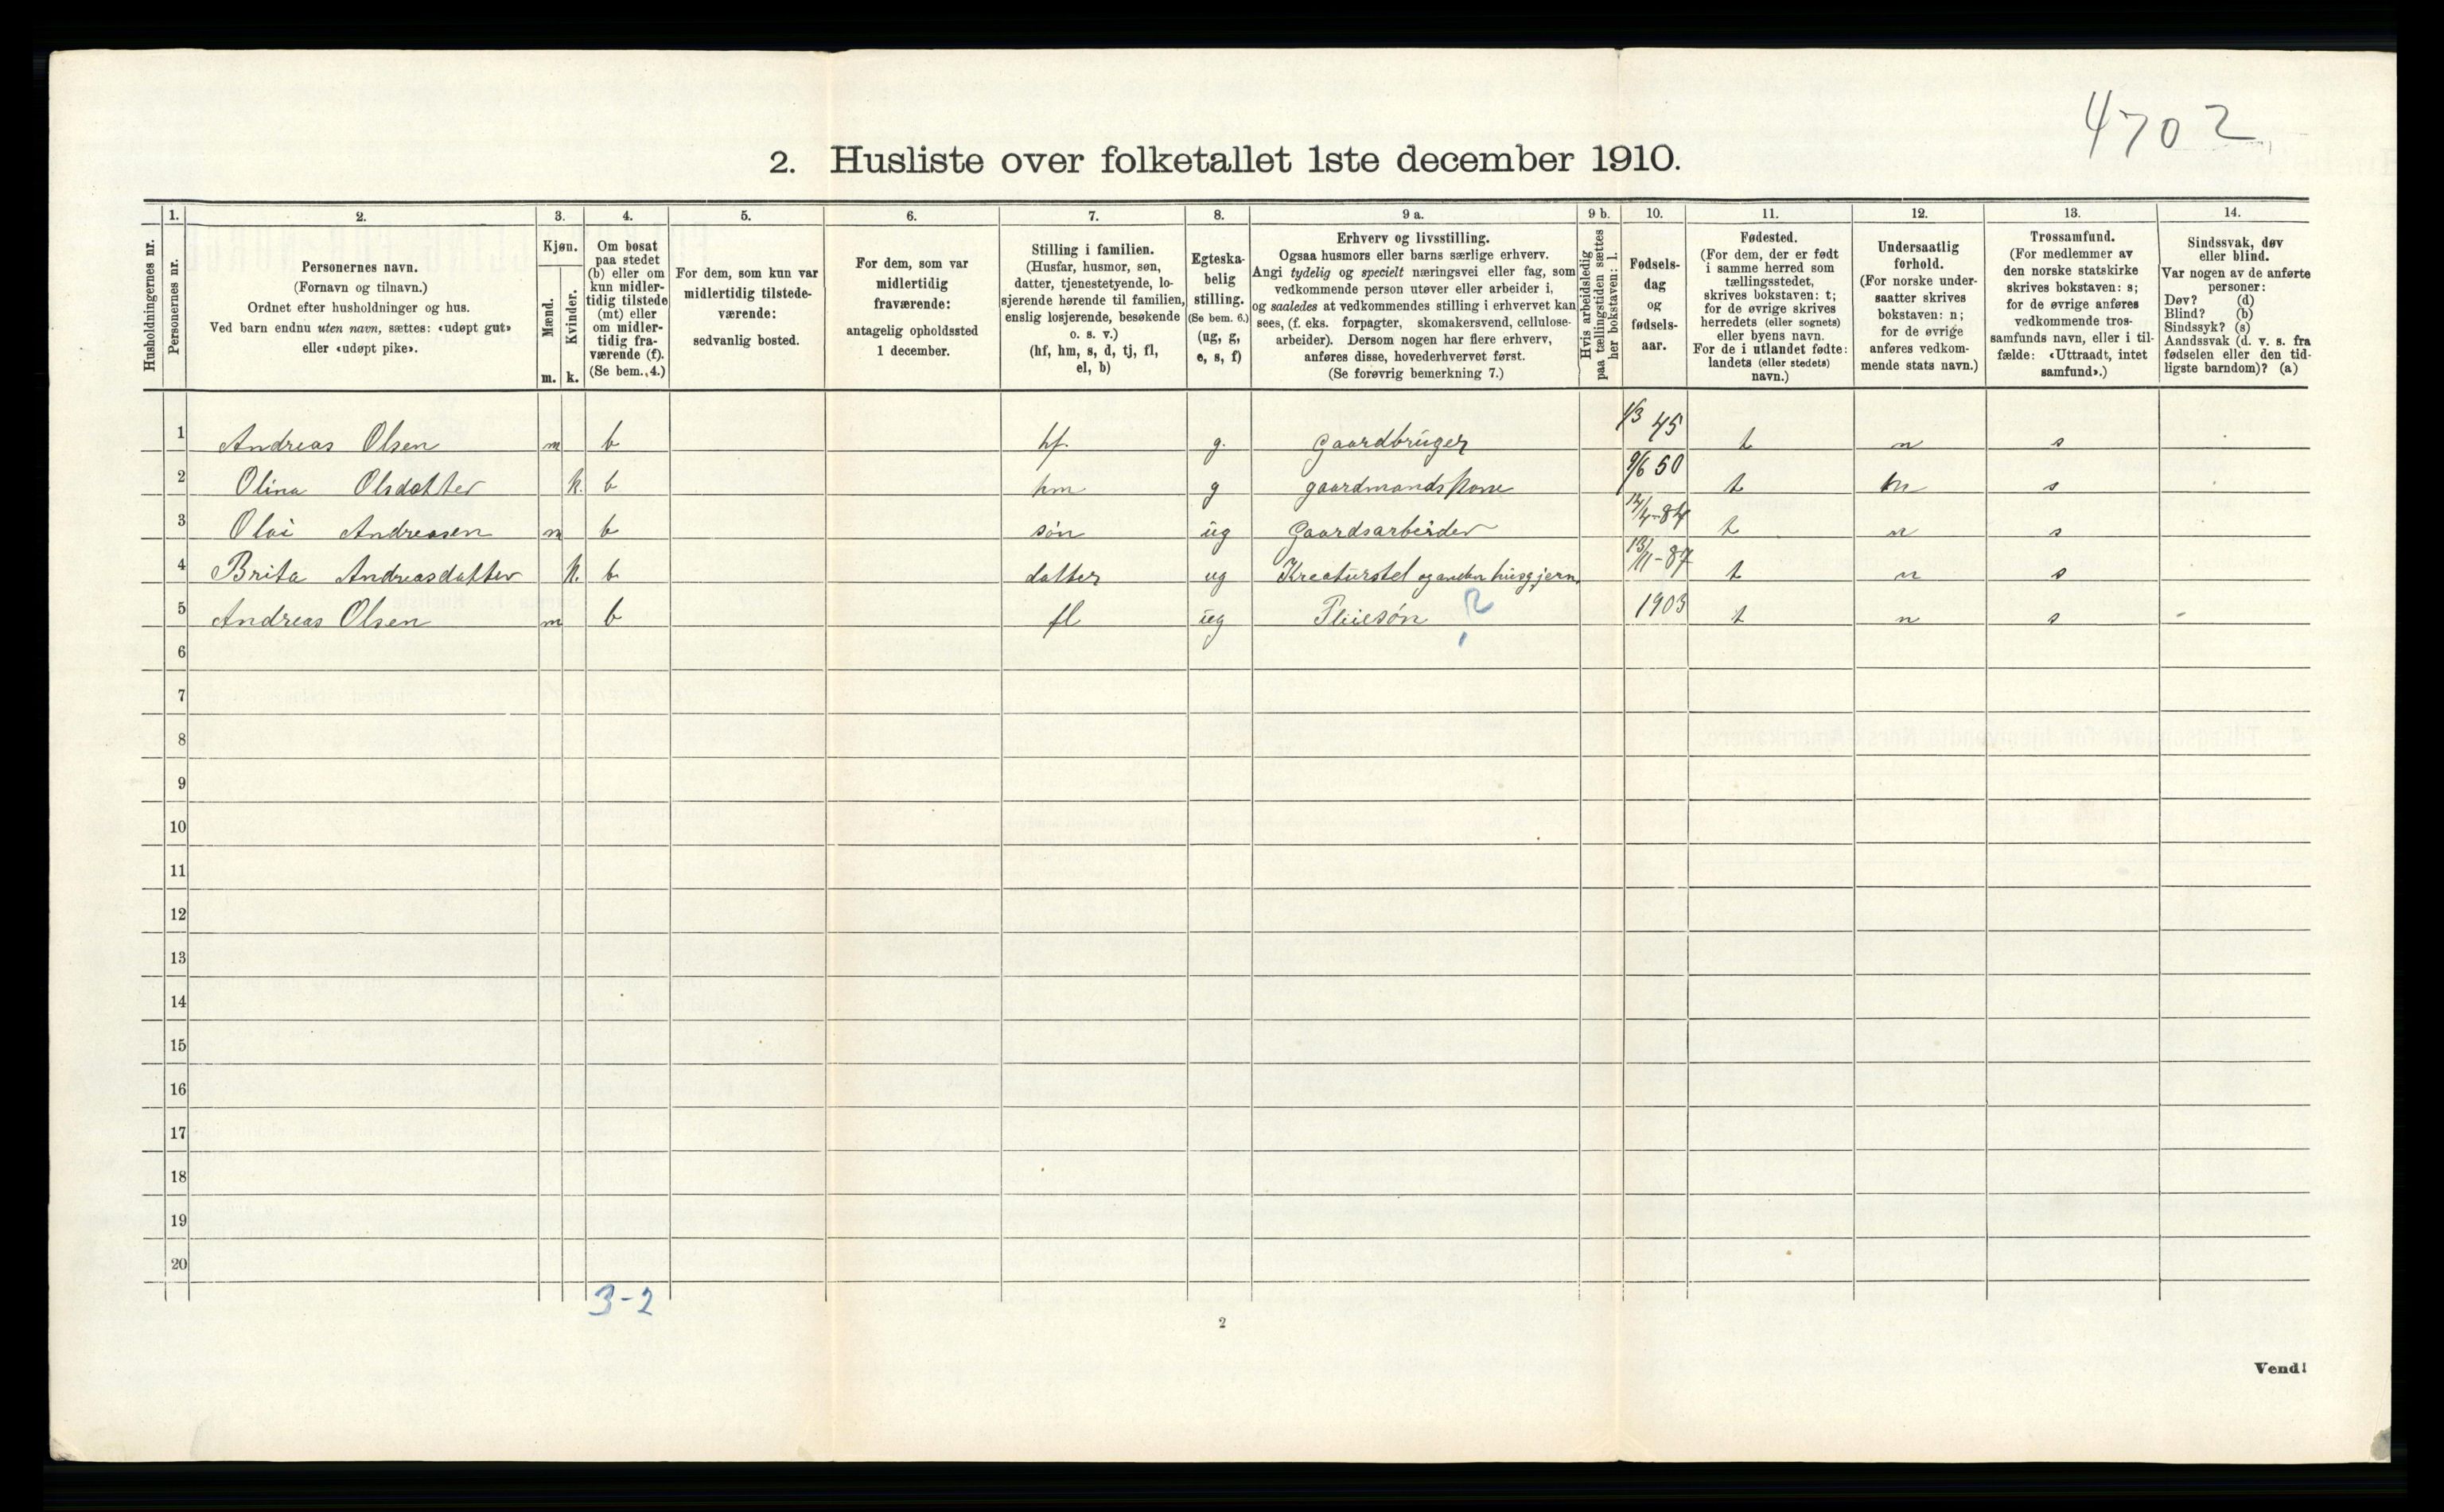 4702
2. Husliste over folketallet 1ste december 1910.
Husholdningernes nr.
1.
Personernes nr.
2.
Personernes navn.
(Fornavn og tilnavn.)
Ordnet efter husholdninger og hus.
Ved barn endnu uten navn, sættes: «udøpt gut»
eller «udøpt pike».
3.
Kjøn.
Mænd.
Kvinder.
m. k.
4.
Om bosat
paa stedet
(b) eller om
kun midler-
tidig tilstede
(mt) eller
om midler-
tidig fra-
værende (f).
(Se bem. 4.)
5.
For dem, som kun var
midlertidig tilstede-
værende:
sedvanlig bosted.
6.
For dem, som var
midlertidig
fraværende:
antagelig opholdssted
1 december.
7.
Stilling i familien.
(Husfar, husmor, søn,
datter, tjenestetyende, lo-
sjerende hørende til familien,
enslig losjerende, besøkende
o. s. v.)
(hf, hm, s, d, tj, fl,
el, b)
8.
Egteska-
belig
stilling.
(Se bem. 6.)
(ug, g,
e, s, f)
9 a.
Erhverv og livsstilling.
Ogsaa husmors eller barns særlige erhverv.
Angi tydelig og specielt næringsvei eller fag, som
vedkommende person utøver eller arbeider i,
og saaledes at vedkommendes stilling i erhvervet kan
sees, (f. eks. forpagter, skomakersvend, cellulose-
arbeider). Dersom nogen har flere erhverv,
anføres disse, hovederhvervet først.
(Se forøvrig bemerkning 7.)
9 b.
Hvis arbeidsledig
paa tællingstiden sættes
her bokstaven: l.
10.
Fødsels-
dag
og
fødsels-
aar.
11.
Fødested.
(For dem, der er født
i samme herred som
tællingsstedet,
skrives bokstaven: t;
for de øvrige skrives
herredets (eller sognets)
eller byens navn.
For de i utlandet fødte:
landets (eller stedets)
navn.)
12.
Undersaatlig
forhold.
(For norske under-
saatter skrives
bokstaven: n;
for de øvrige
anføres vedkom-
mende stats navn.)
13.
Trossamfund.
(For medlemmer av
den norske statskirke
skrives bokstaven: s;
for de øvrige anføres
vedkommende tros-
samfunds navn, eller i til-
fælde: «Uttraadt, intet
samfund».)
14.
Sindssvak, døv
eller blind.
Var nogen av de anførte
personer:
Døv? (d)
Blind? (b)
Sindssyk? (s)
Aandssvak (d. v. s. fra
fødselen eller den tid-
ligste barndom)? (a)
1 Andreas Olsen m b hf. g. Gaardbruger 1/3 45 t n s
2 Olina Olsdatter k. b hm g gaardmandskone 9/6 50 t n s
3 Olai Andreasen m b søn ug Gaardsarbeider 12/4-84 t n s
4 Brita Andreasdatter k. b datter ug Kreaturstel og anden husgjern. 13/11-87 t n s
5 Andreas Olsen m b fl ug Pleiesøn ? 1903 t n s -
6
7
8
9
10
11
12
13
14
15
16
17
18
19
20
3-2
2
Vend!